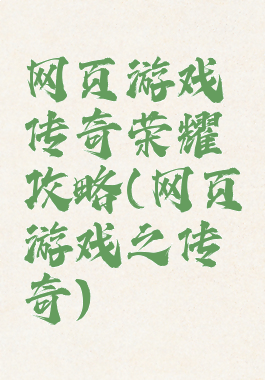 网页游戏
传奇荣耀
攻略(网页
游戏之传
奇)